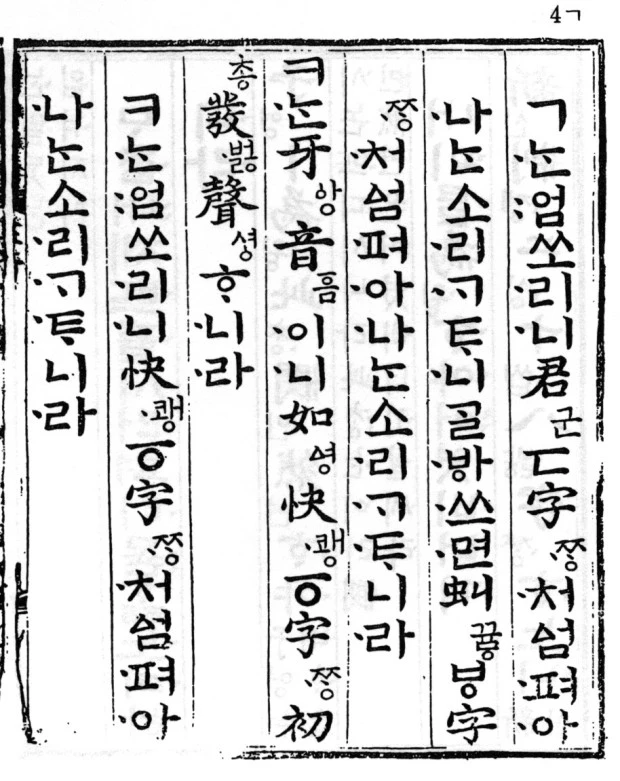 4ㄱ
ㄱᄂᆞᆫ〮엄〯쏘리〮니〮君군ㄷ字ᄍᆞᆼ〮처〮ᅀᅥᆷ펴〮아〮
나ᄂᆞᆫ소리〮ᄀᆞ〮ᄐᆞ니〮ᄀᆞᆯᄫᅡ〮쓰〮면〮虯뀨ᇢㅸ字
ᄍᆞᆼ〮처〮ᅀᅥᆷ펴〮아〮나ᄂᆞᆫ소리〮ᄀᆞ〮ᄐᆞ니〮라〮
ㅋᄂᆞᆫ〮牙ᅌᅡᆼ音ᅙᅳᆷ이〮니〮如ᅀᅧᆼ快쾡〮ㆆ字ᄍᆞᆼ〮初
총發버ᇙ〮聲셔ᇰᄒᆞ니〮라〮
ㅋᄂᆞᆫ〮엄〯쏘리〮니〮快쾡〮ㆆ字ᄍᆞᆼ〮처〮ᅀᅥᆷ펴〮아〮
나ᄂᆞᆫ소리〮ᄀᆞ〮ᄐᆞ니〮라〮